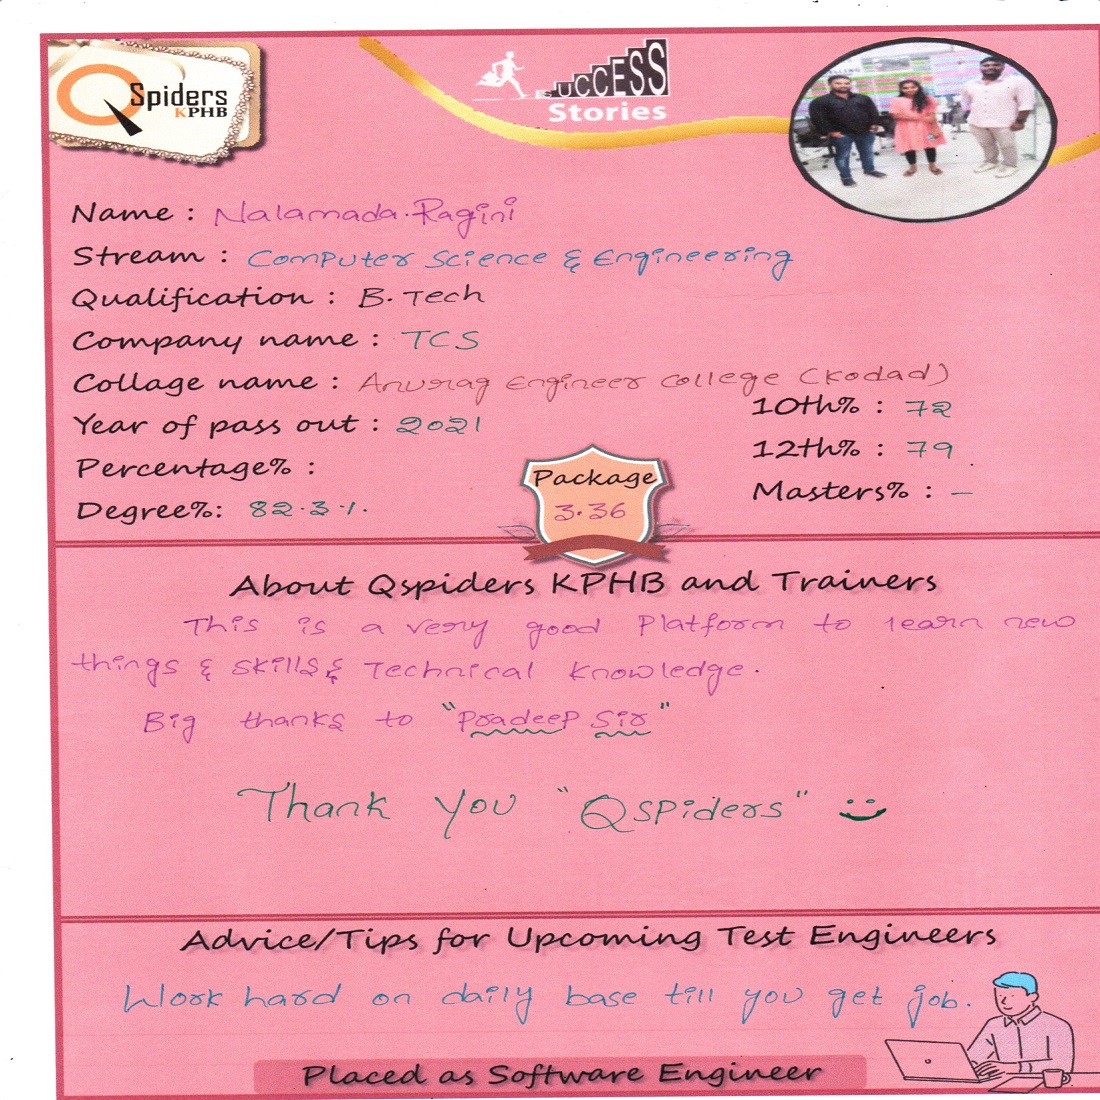 QSpiders
KPHB
SUCCESS
Stories
Name : Nalamada.Ragini
Stream : Computer Science & Engineering
Qualification : B.Tech
Company name : TCS
Collage name : Anurag Engineer college (Kodad)
Year of pass out : 2021
10th% : 72
Percentage% :
12th% : 79
Degree%: 82.3%.
Masters% : –
Package
3.36
About Qspiders KPHB and Trainers
This is a very good Platform to learn new
things & skills & Technical knowledge.
Big thanks to "Pradeep Sir"
Thank you "QSpiders"
Advice/Tips for Upcoming Test Engineers
Work hard on daily base till you get job.
Placed as Software Engineer